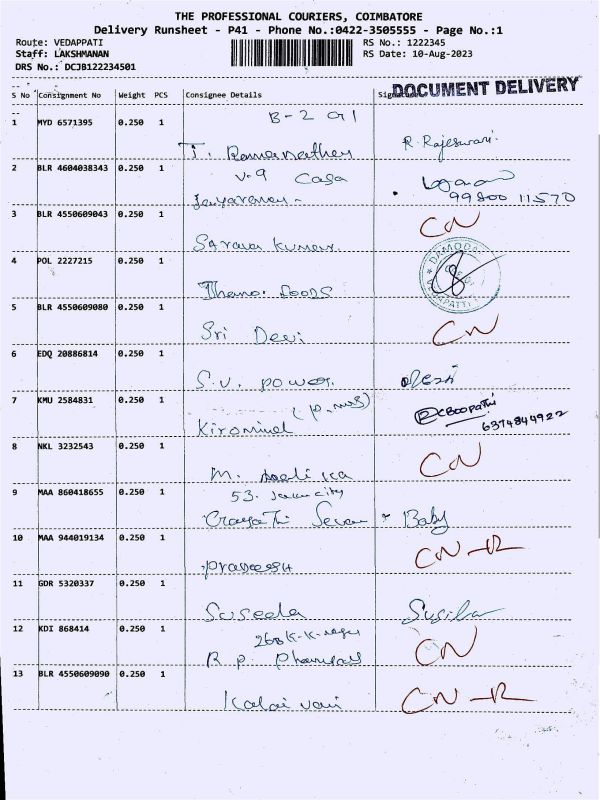 THE PROFESSIONAL COURIERS, COIMBATORE
Delivery Runsheet - P41 - Phone No.:0422-3505555 - Page No.:1
Route: VEDAPPATI RS No.: 1222345
Staff: LAKSHMANAN RS Date: 10-Aug-2023
DRS No.: DCJB122234501
DOCUMENT DELIVERY
S No Consignment No Weight PCS Consignee Details Signature
B-2 G1
1 MYD 6571395 0.250 1
T. Ramanathan R. Rajeswari
2 BLR 4604038343 0.250 1 V-9 Casa
Jayaraman - 99800 11570
3 BLR 4550609043 0.250 1 CN
Sarava Kumar.
4 POL 2227215 0.250 1 DAMODA
Thanoi foods
5 BLR 4550609080 0.250 1 CN
Sri Devi
6 EDQ 20886814 0.250 1
S.V. power.
7 KMU 2584831 0.250 1 Boopathi
Kirominal 6374844922
8 NKL 3232543 0.250 1 CN
M.
9 MAA 860418655 0.250 1 53. city
Gayathi Baby
10 MAA 944019134 0.250 1 CN-R
11 GDR 5320337 0.250 1
Suseela Susila
12 KDI 868414 0.250 1 268 K-K-nagar CN
R P.
13 BLR 4550609090 0.250 1
Kalai vani CN-R